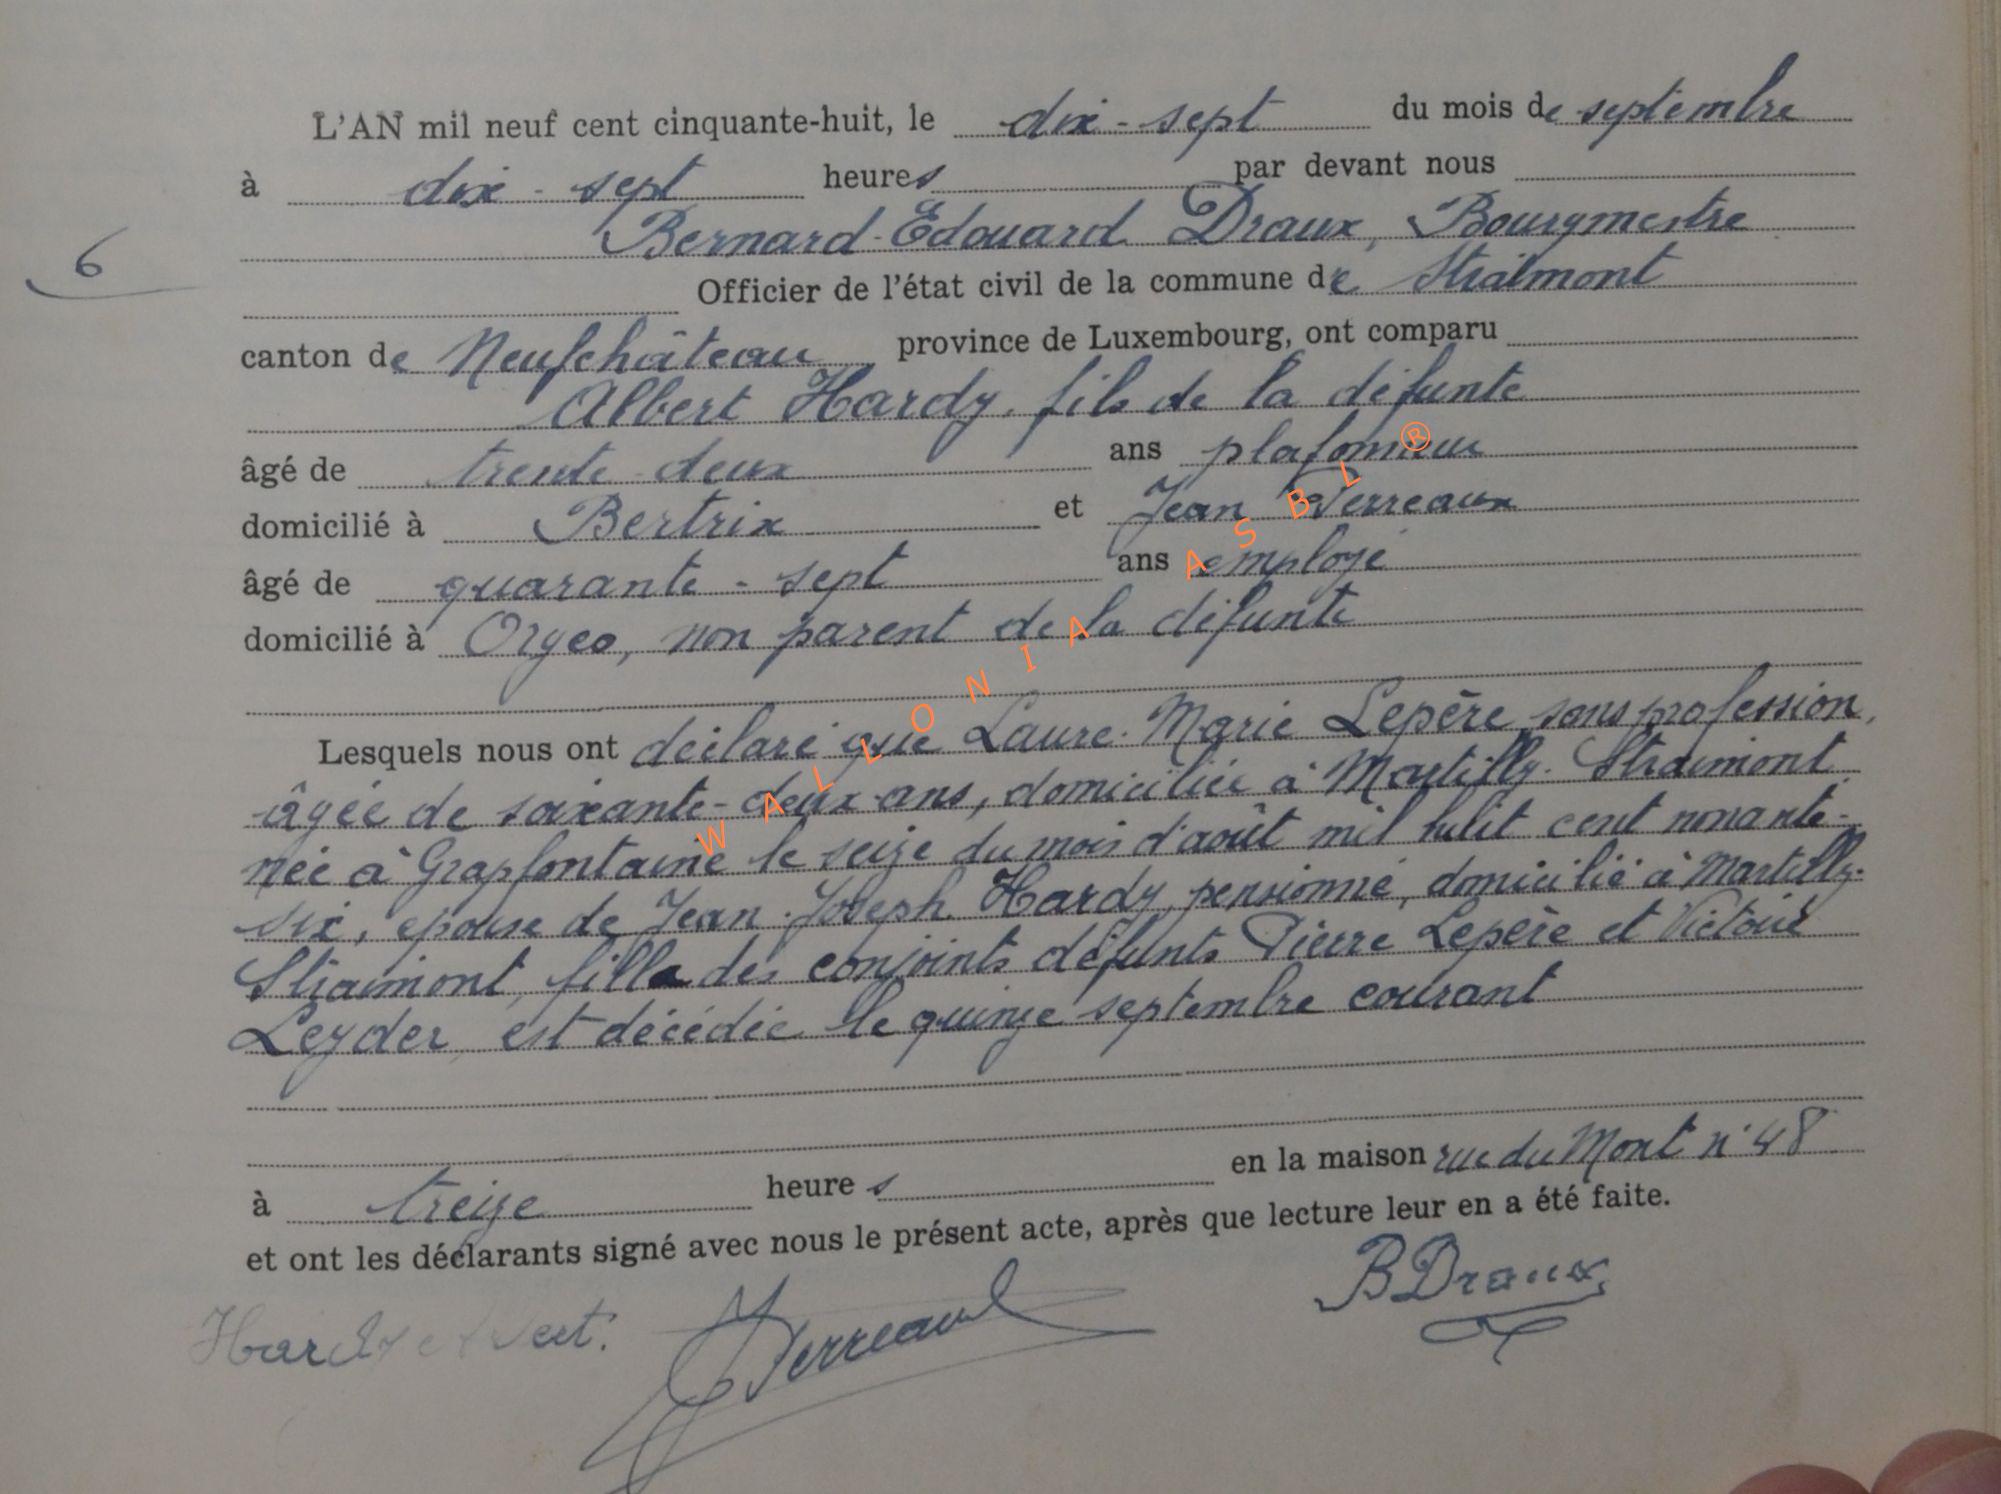 L'AN mil neuf cent cinquante-huit, le dix-sept du mois de septembre
à dix-sept heures par devant nous
Bernard-Edouard Draux, Bourgmestre
6
Officier de l'état civil de la commune de Straimont
canton de Neufchâteau province de Luxembourg, ont comparu
Albert Hardy, fils de la défunte
âgé de trente-deux ans plafonneur
domicilié à Bertrix et Jean Perreaux
âgé de quarante-sept ans employé
domicilié à Orgeo, non parent de la défunte
Lesquels nous ont déclaré que Laure-Marie Lepère sans profession,
âgée de soixante-deux ans, domiciliée à Martilly-Straimont
née à Grapfontaine le seize du mois d'août mil huit cent nonante-
six, épouse de Jean-Joseph Hardy, pensionné, domicilié à Martilly-
Straimont, fille des conjoints défunts Pierre Lepère et Victoire
Leyder, est décédée le quinze septembre courant
à treize heures en la maison rue du Mont n°48
et ont les déclarants signé avec nous le présent acte, après que lecture leur en a été faite.
Hardy Perreaux B Draux
WALLONIA ASBL ®